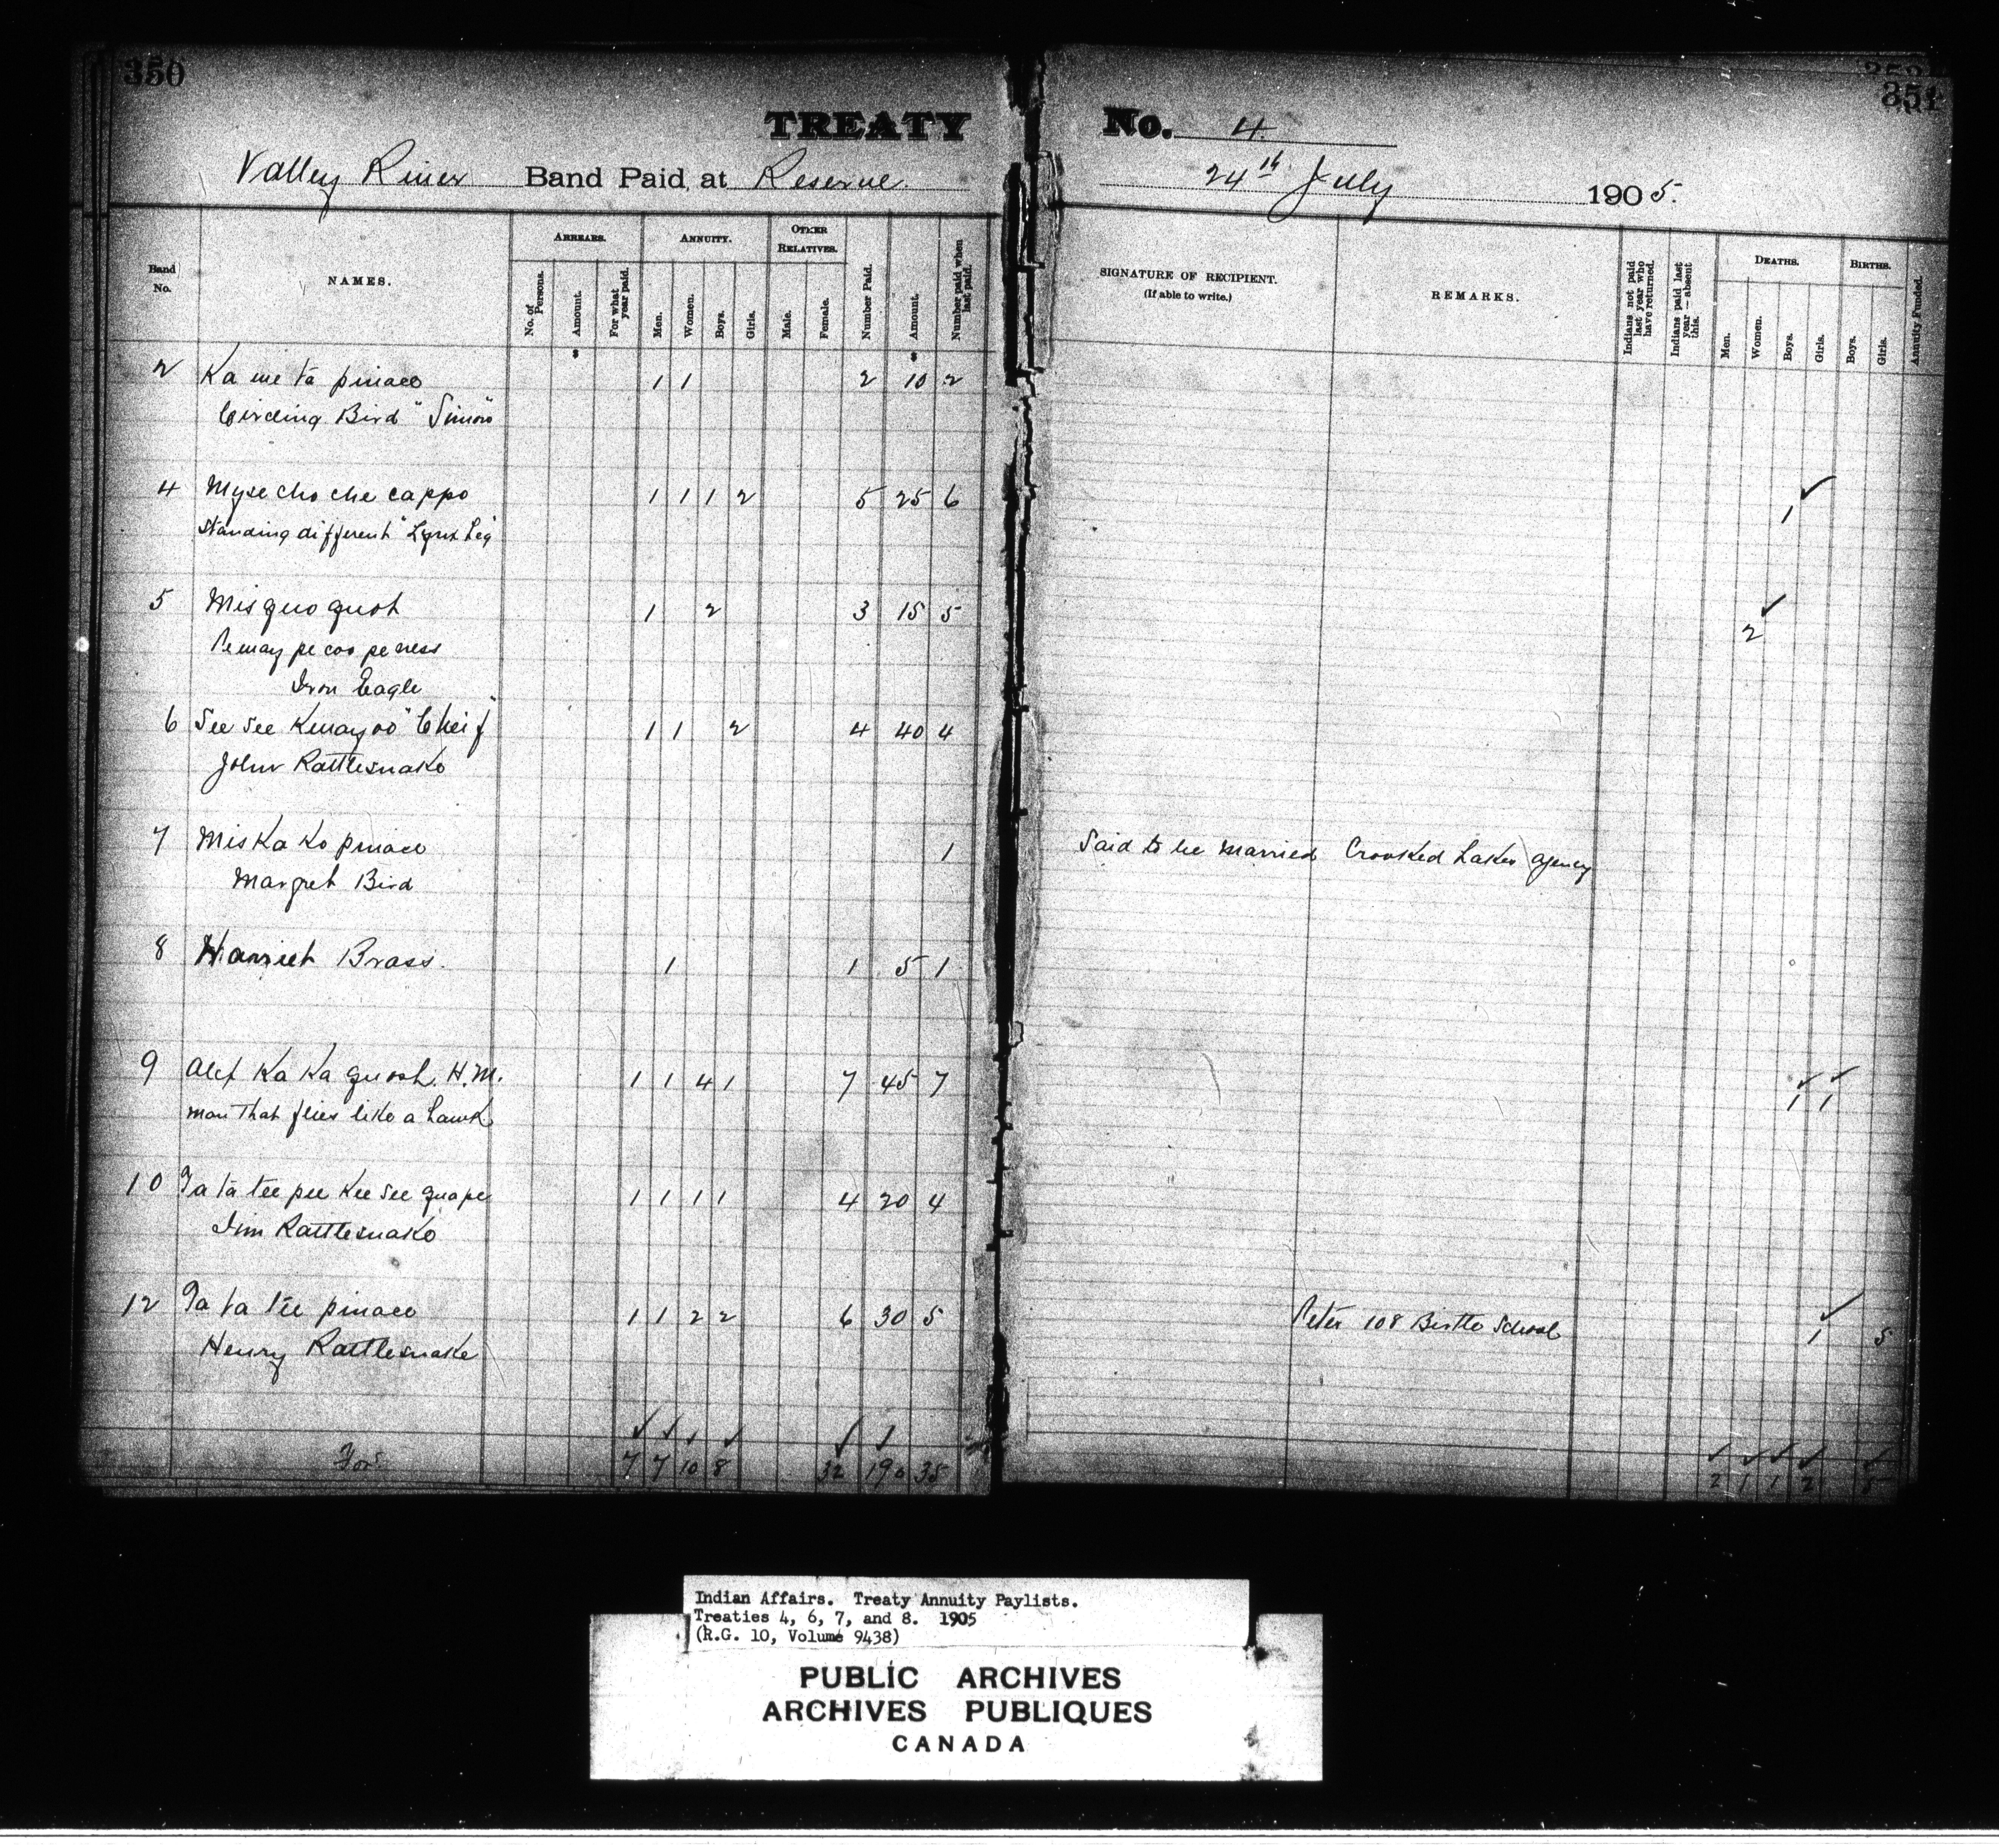 350
351
TREATY No. 4
Valley River Band Paid at Reserve.
24th July 1905.
Band No.
NAMES.
ARREARS.
No. of Persons.
Amount.
For what year paid.
ANNUITY.
Men.
Women.
Boys.
Girls.
OTHER RELATIVES.
Male.
Female.
Number Paid.
Amount.
Number paid when last paid.
SIGNATURE OF RECIPIENT.
(If able to write.)
REMARKS.
Indians not paid last year who have returned.
Indians paid last year — absent this.
DEATHS.
Men.
Women.
Boys.
Girls.
BIRTHS.
Boys.
Girls.
Annuity Funded.
2 Ka we ta pinace 1 1 2 10 2
Circling Bird "Simon"
4 Myse cho che cappo 1 1 1 2 5 25 6 1
Standing different "Lynx Leg"
5 Misquo quot 1 2 3 15 5 2
Pemay pe coo pe ness
Iron Eagle
6 See see Kwayoo "Cheif" 1 1 2 4 40 4
John Rattlesnake
7 Mis Ka Ko pinace 1 Said to be married Crooked Lakes Agency
Margret Bird
8 Harriet Brass. 1 1 5 1
9 Alex Ka Ka quosh. H.M. 1 1 4 1 7 45 7 1 1
Man That flies like a hawk
10 Ta ta tee pee Kee see quape 1 1 1 1 4 20 4
Jim Rattlesnake
12 Ta ta tee pinace 1 1 2 2 6 30 5 Peter 108 Birtle School 1 5
Henry Rattlesnake
For. 7 7 10 8 32 190 35 2 1 1 2 5
Indian Affairs. Treaty Annuity Paylists.
Treaties 4, 6, 7, and 8. 1905
(R.G. 10, Volume 9438)
PUBLIC ARCHIVES
ARCHIVES PUBLIQUES
CANADA